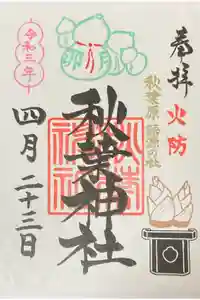 奉拝
火防
秋葉原 誕源の社
卯月
秋葉神社
令和三年
四月二十三日